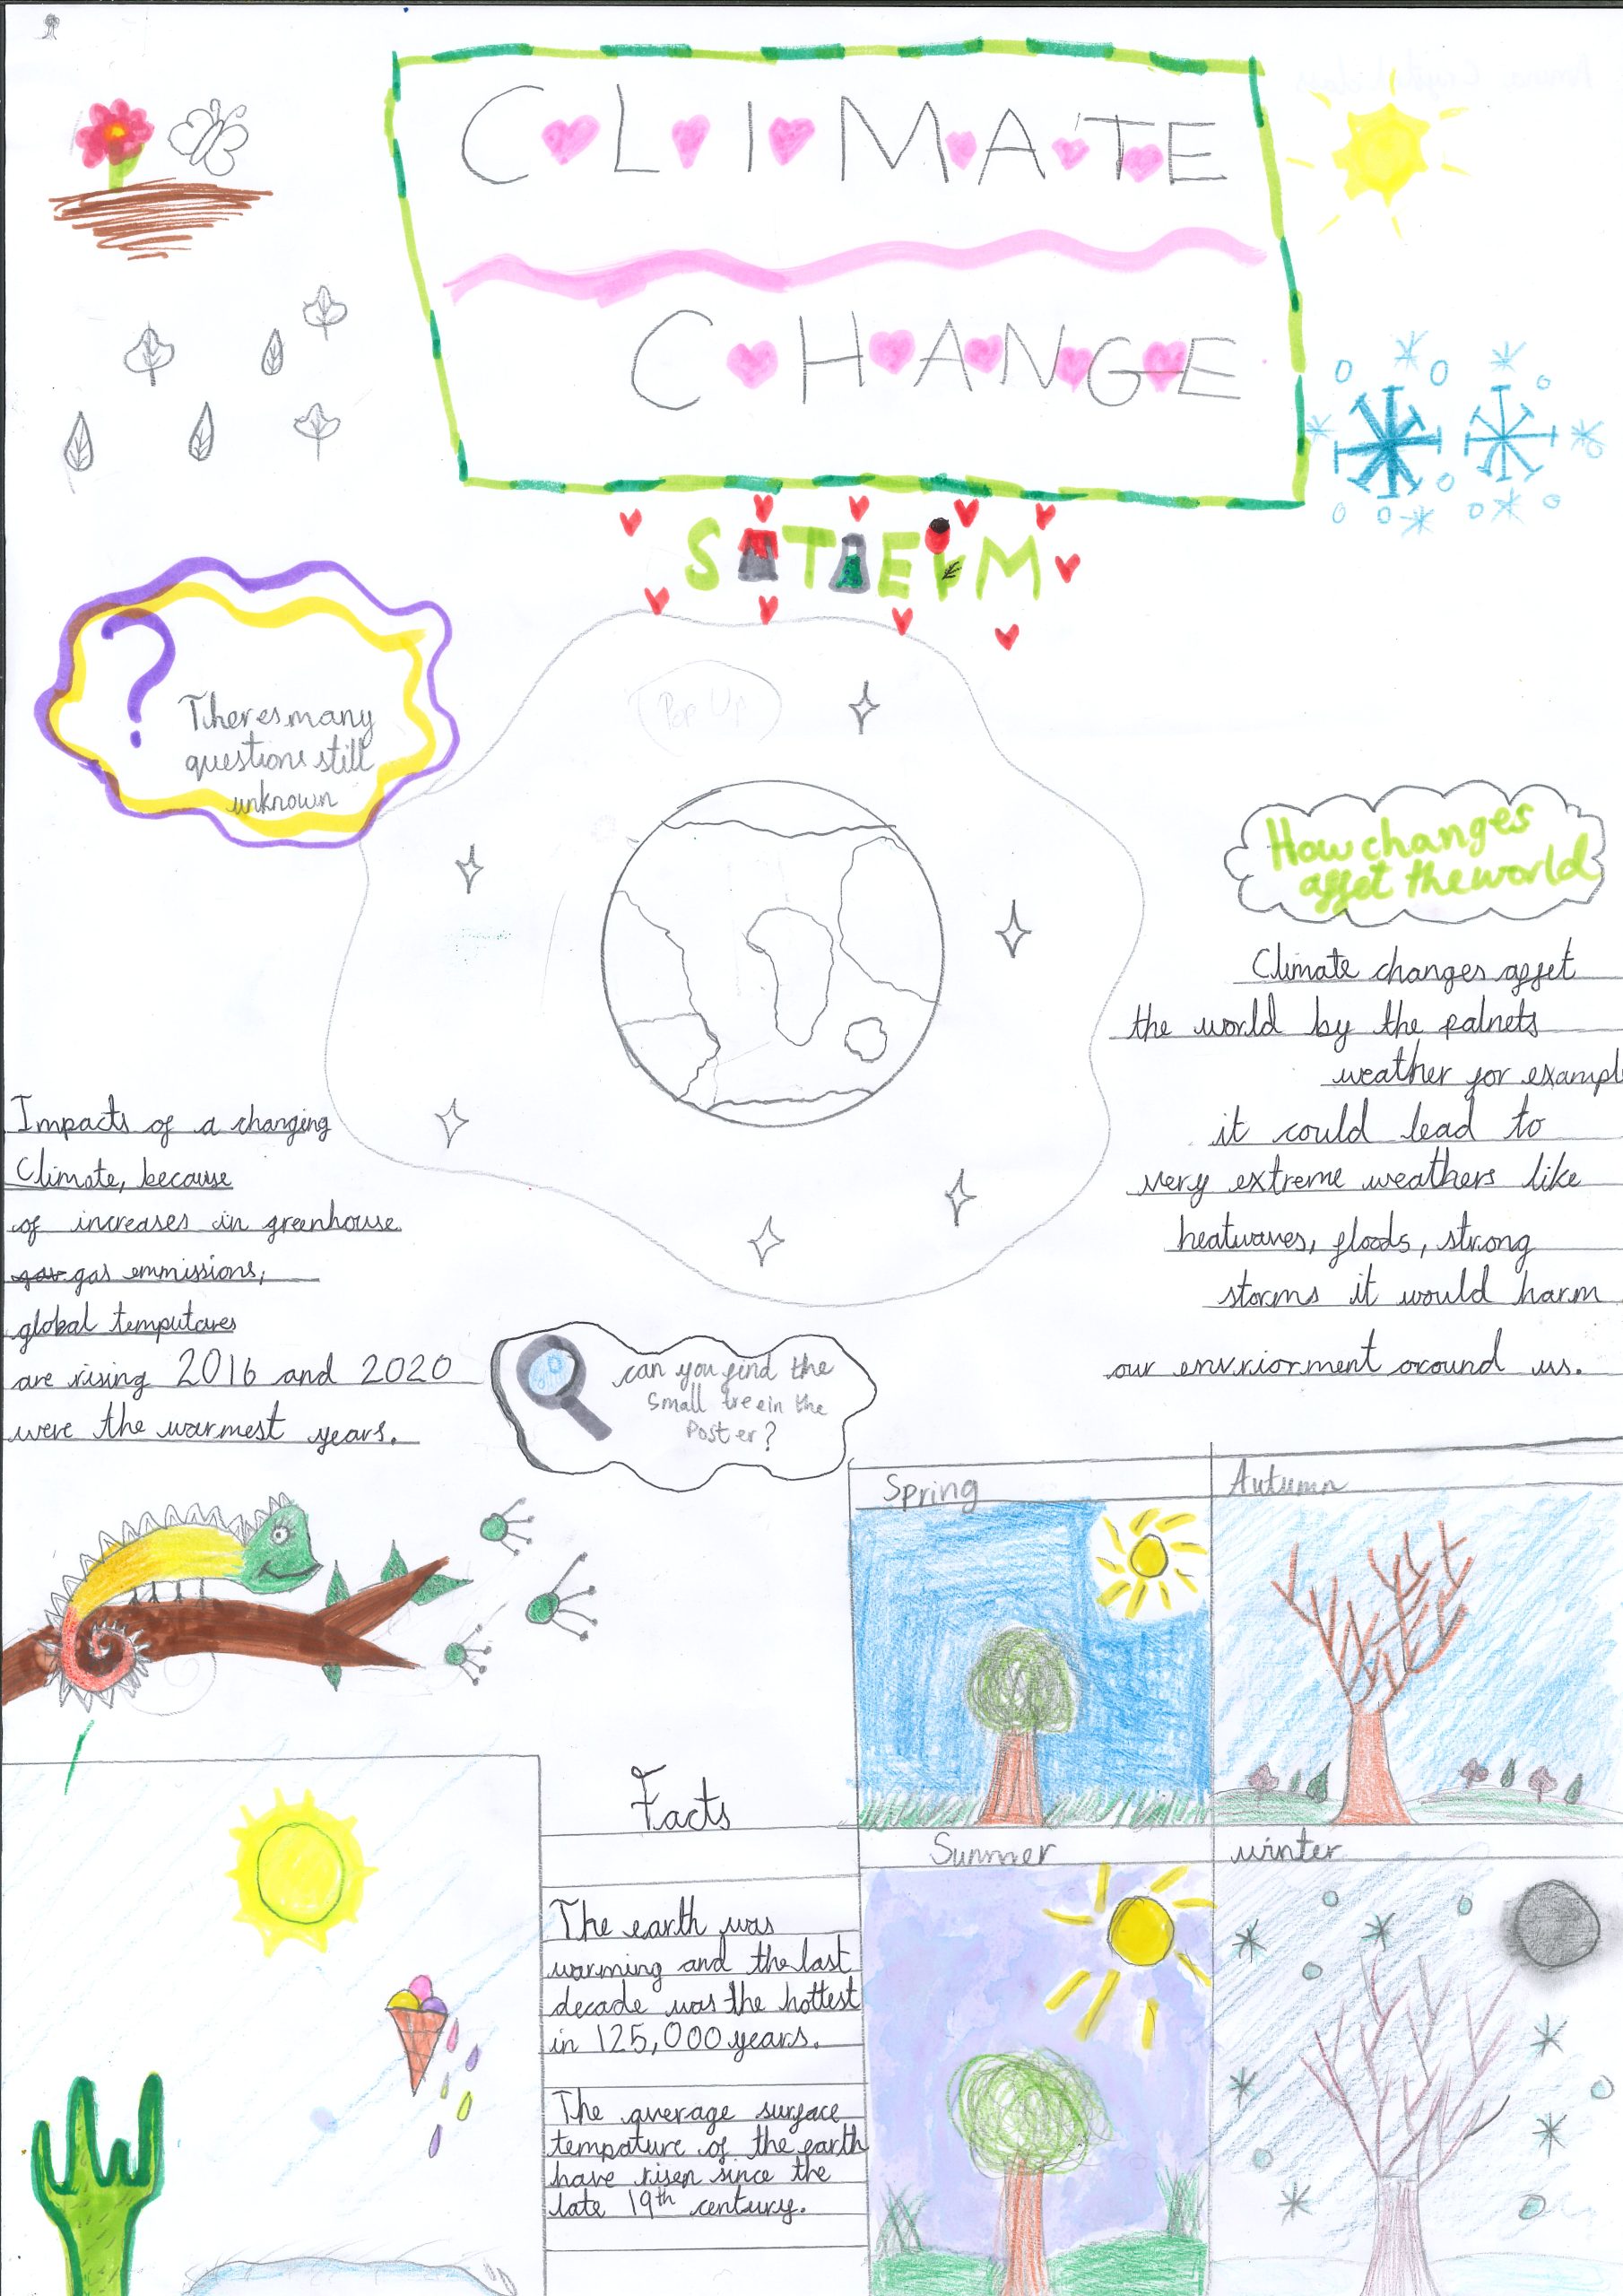 CLIMATE
CHANGE
STEM
?
Theres many
questions still
unknown
Pop Up
How changes
affet the world
Climate changes affet
the world by the palnets
weather for exampl
it could lead to
very extreme weathers like
heatwaves, floods, strong
storms it would harm
our envriorment around us.
Impacts of a changing
Climate, because
of increases in greenhouse
gas emmissions,
global temputares
are rising 2016 and 2020
were the warmest years.
can you find the
small tree in the
Poster?
Spring
Autumn
Summer
winter
Facts
The earth was
warming and the last
decade was the hottest
in 125,000 years.
The average surface
tempature of the earth
have risen since the
late 19th century.